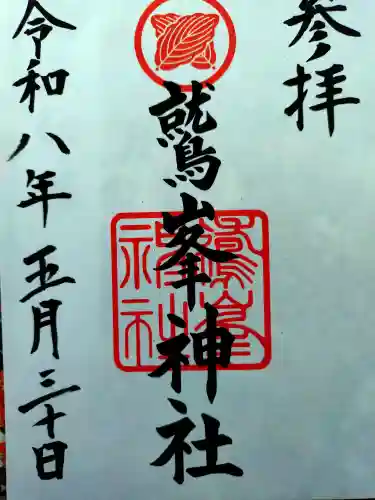 参拝
鷲峯神社
鷲峯神社
令和八年五月三十日